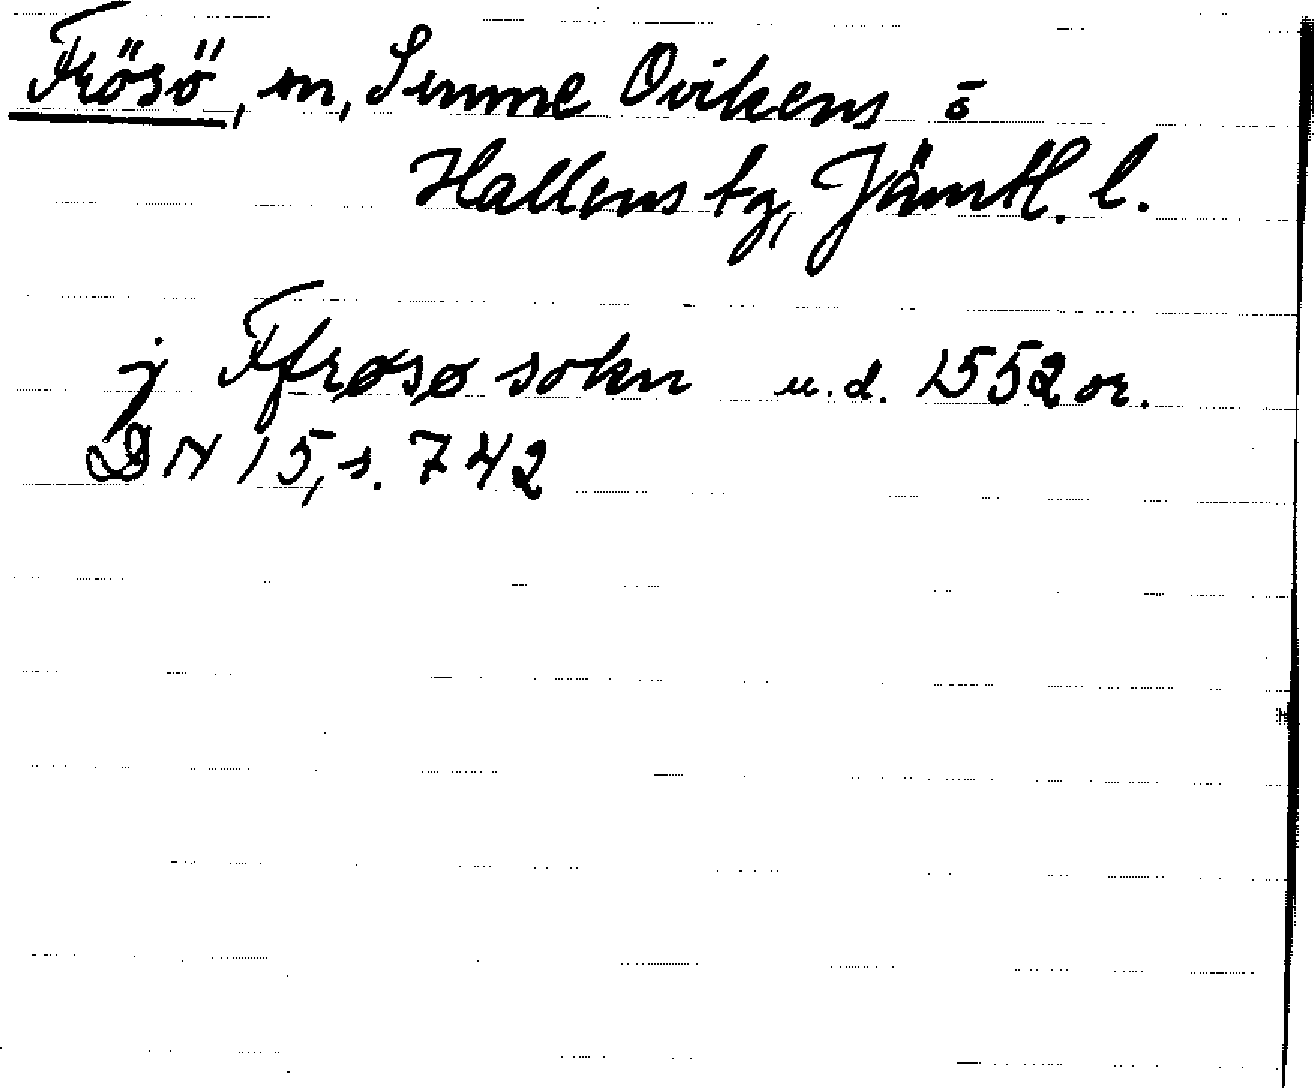 Frösö, sn, Sunne Ovikens o
Hallens tg, Jämtl. l.
j Ffrøsø sokn u.d. 1552 or.
DN 15, s. 742